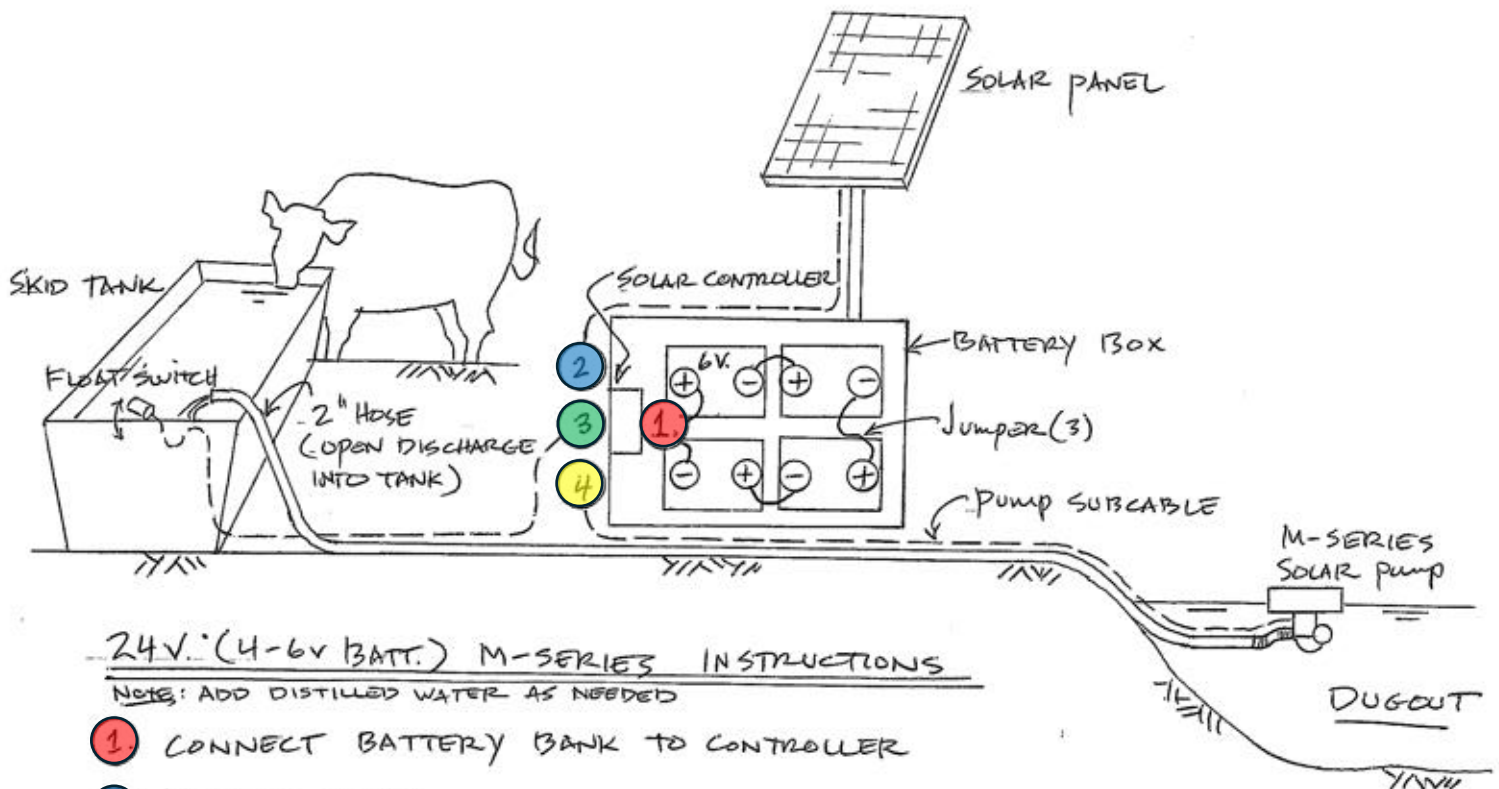 SOLAR PANEL
SKID TANK
SOLAR CONTROLLER
BATTERY BOX
FLOAT SWITCH
2" HOSE
(OPEN DISCHARGE
INTO TANK)
2
3
4
1.
6V.
+ - + -
- + - +
JUMPER (3)
PUMP SUBCABLE
M-SERIES
SOLAR PUMP
DUGOUT
24V. (4-6V BATT.) M-SERIES INSTRUCTIONS
NOTE: ADD DISTILLED WATER AS NEEDED
1. CONNECT BATTERY BANK TO CONTROLLER